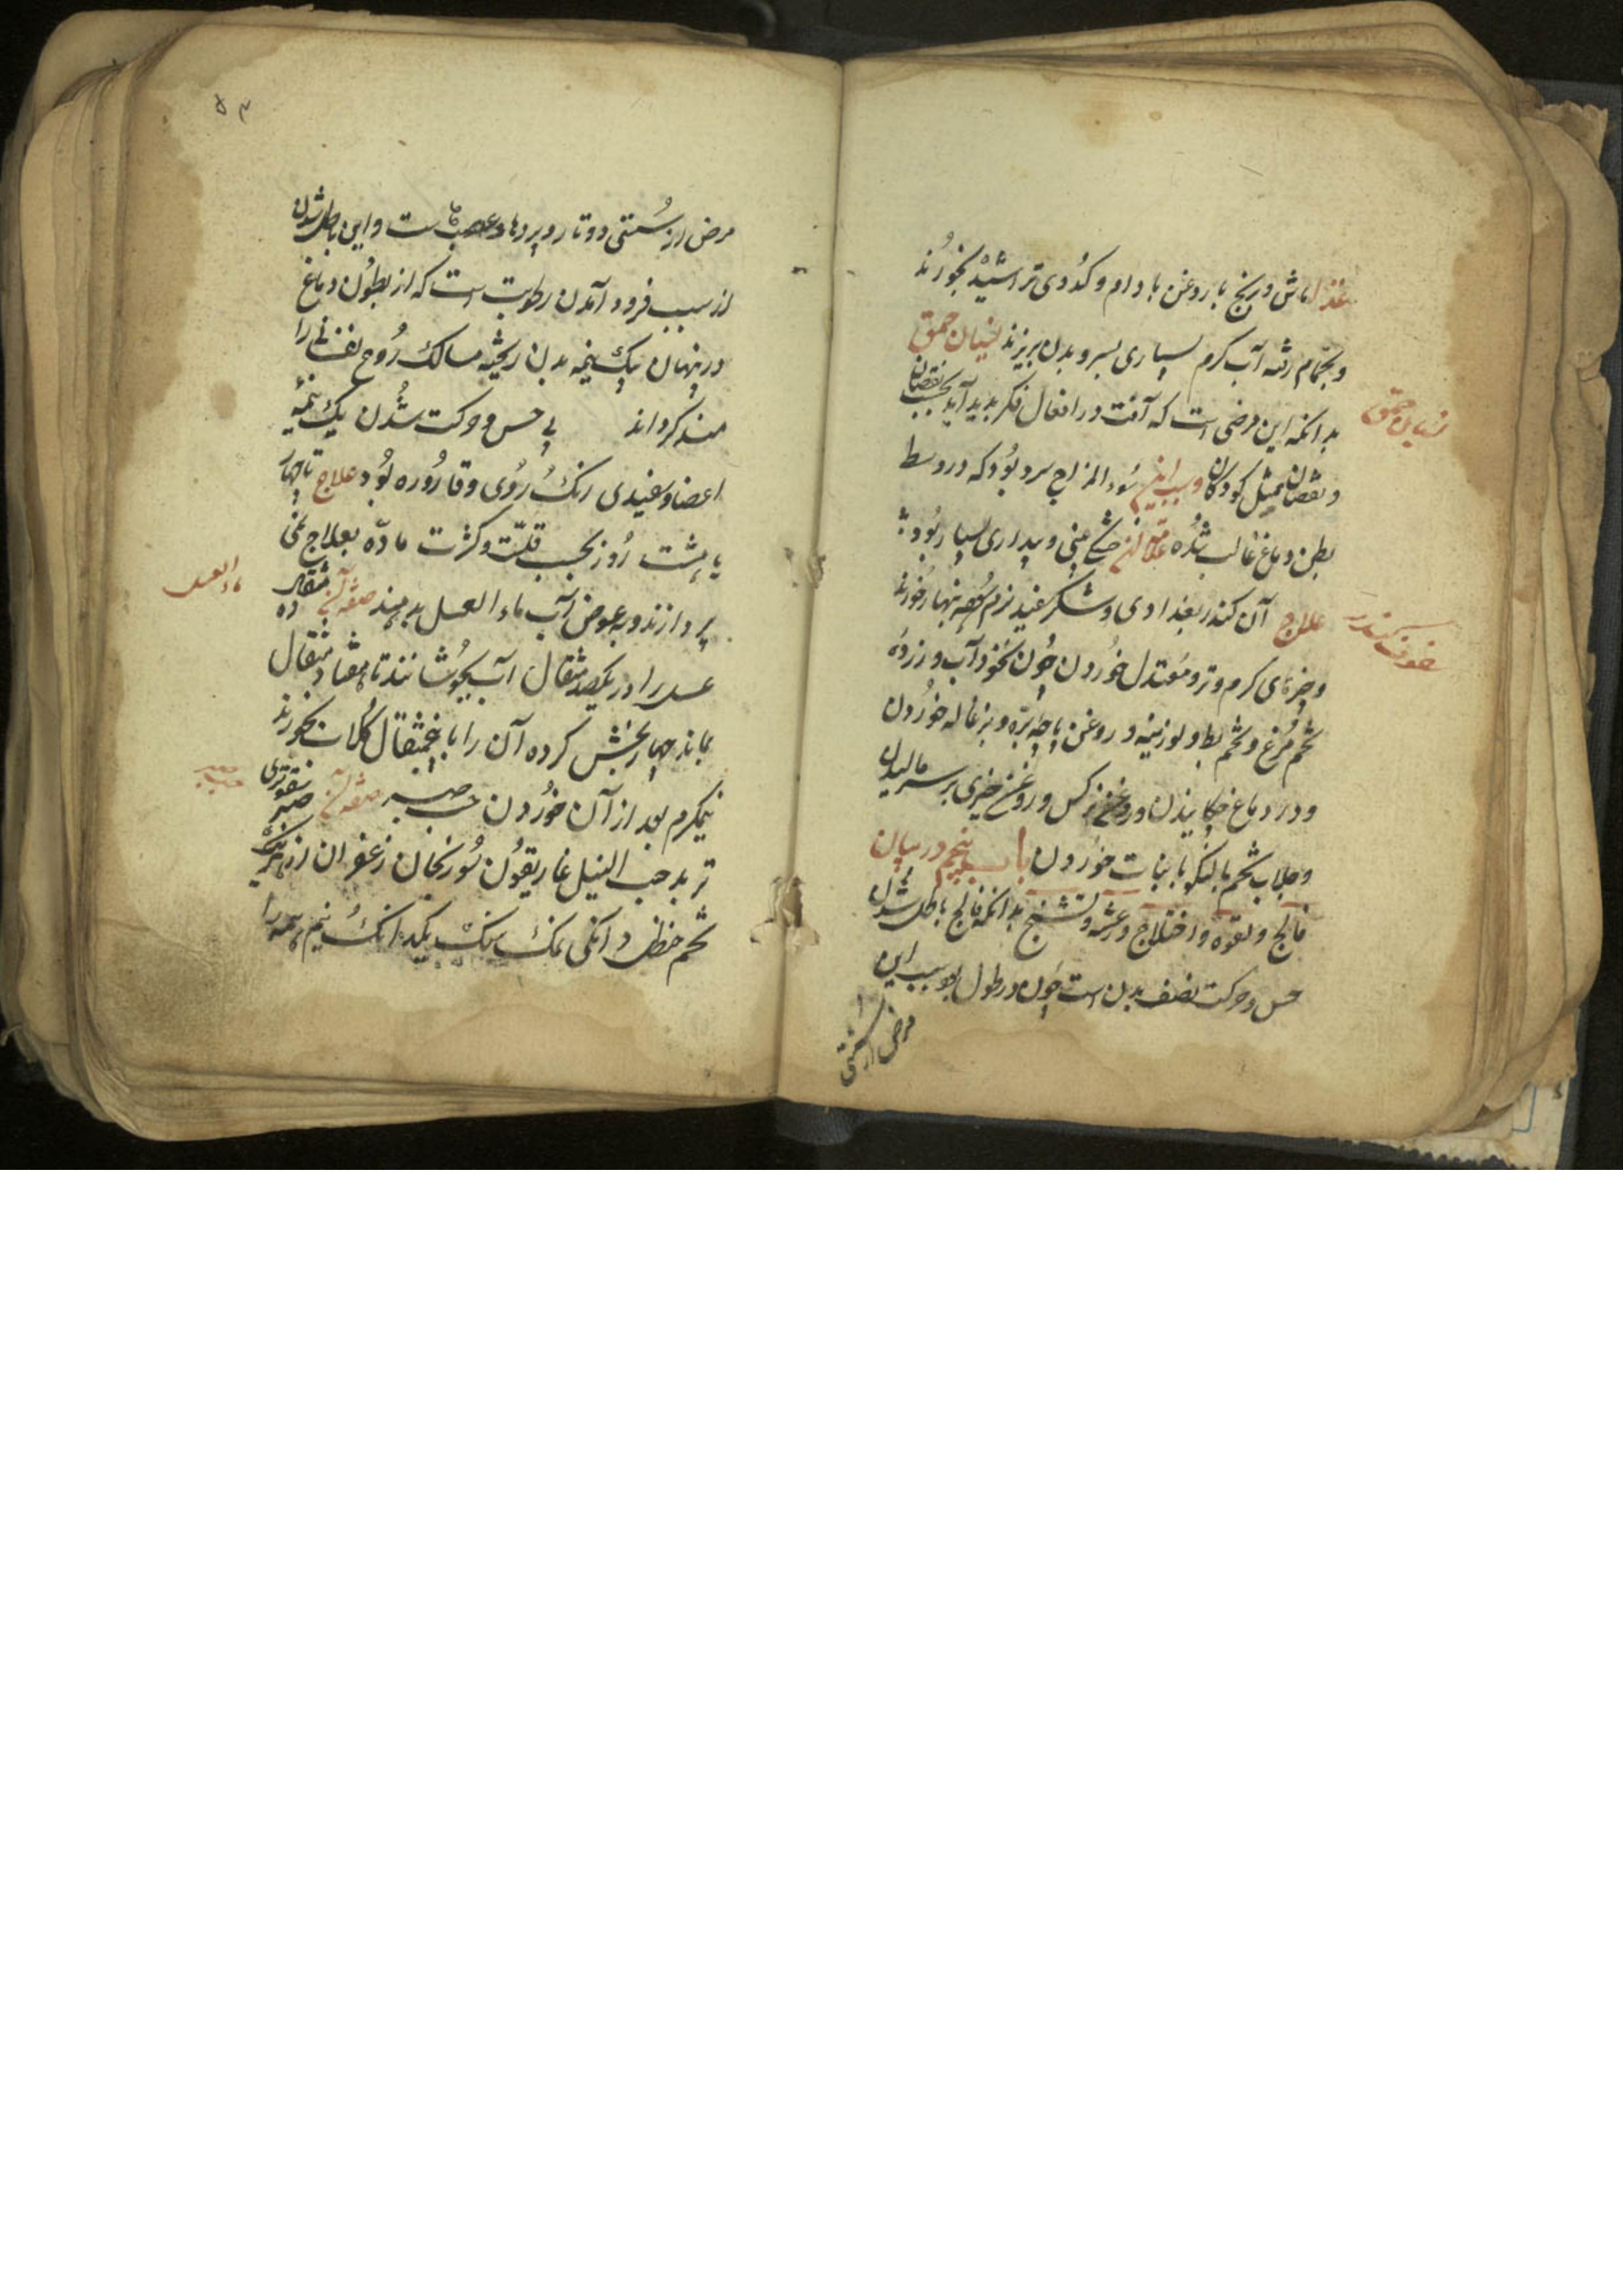 غذا ماش و برنج با روغن بادام و کدوی تراشیده بخورند
و بحمام رفته آب کرم بسیاری بسر و بدن بریزند نسیان حمق
بدانکه این مرضی است که آفت در افعال فکر پدید آید بحسب نقصان
نسیان حمق
و نقصان بمثل کودکان و سبب این سوء المزاج سرد بود که در وسط
بطن دماغ غالب شده علامت آن خشکی بینی و بیداری بسیار بود
علاج آن کندر بغدادی و شکر سفید نرم بنهار خورند
سفوف کندر
و چیزهای کرم و تر و معتدل خوردن چون نخود آب و زرده
تخم مرغ و شحم بط و لوزینه و روغن پاچه بره و بزغاله خوردن
و در دماغ چکانیدن و روغن نرکس و روغن خیری بر سر مالیدن
و جلاب تخم بالنکو با نبات خوردن باب پنجم در بیان
فالج و لقوه و اختلاج و رعشه و تشنج بدانکه فالج باطل شدن
حس و حرکت نصف بدن است چون در طول بود سبب این
مرض از سستی
۵۳
مرض از سستی دو تا رو پردهاء عصبهاست و این باطل شدن
از سبب فرود آمدن رطوبت است که از بطون دماغ
در پنهان بیک نیمه بدن ریخته مسالک روح نفسانی را
مسدد کرداند بی حس و حرکت شدن یک نیمه
اعضا و سفیدی رنک روی و قاروره بود علاج تا چهار
یا هشت روز بحسب قلت و کثرت ماده بعلاج نمی
پردازند و بعوض آب ماء العسل بدهند صفة آن ده مثقال
ماء العسل
عسل را در یکصد مثقال آب بجوشانند تا هفتاد مثقال
بماند چهار بخش کرده آن را با پنج مثقال کلاب بخورند
نیمکرم بعد از آن خوردن حب صبر صفة آن صبر سقوطری
حب صبر
تربد حب النیل غاریقون سورنجان زعفران از هریک
شحم حنظل دانکی نمک سنک یکدانک نیم همه را